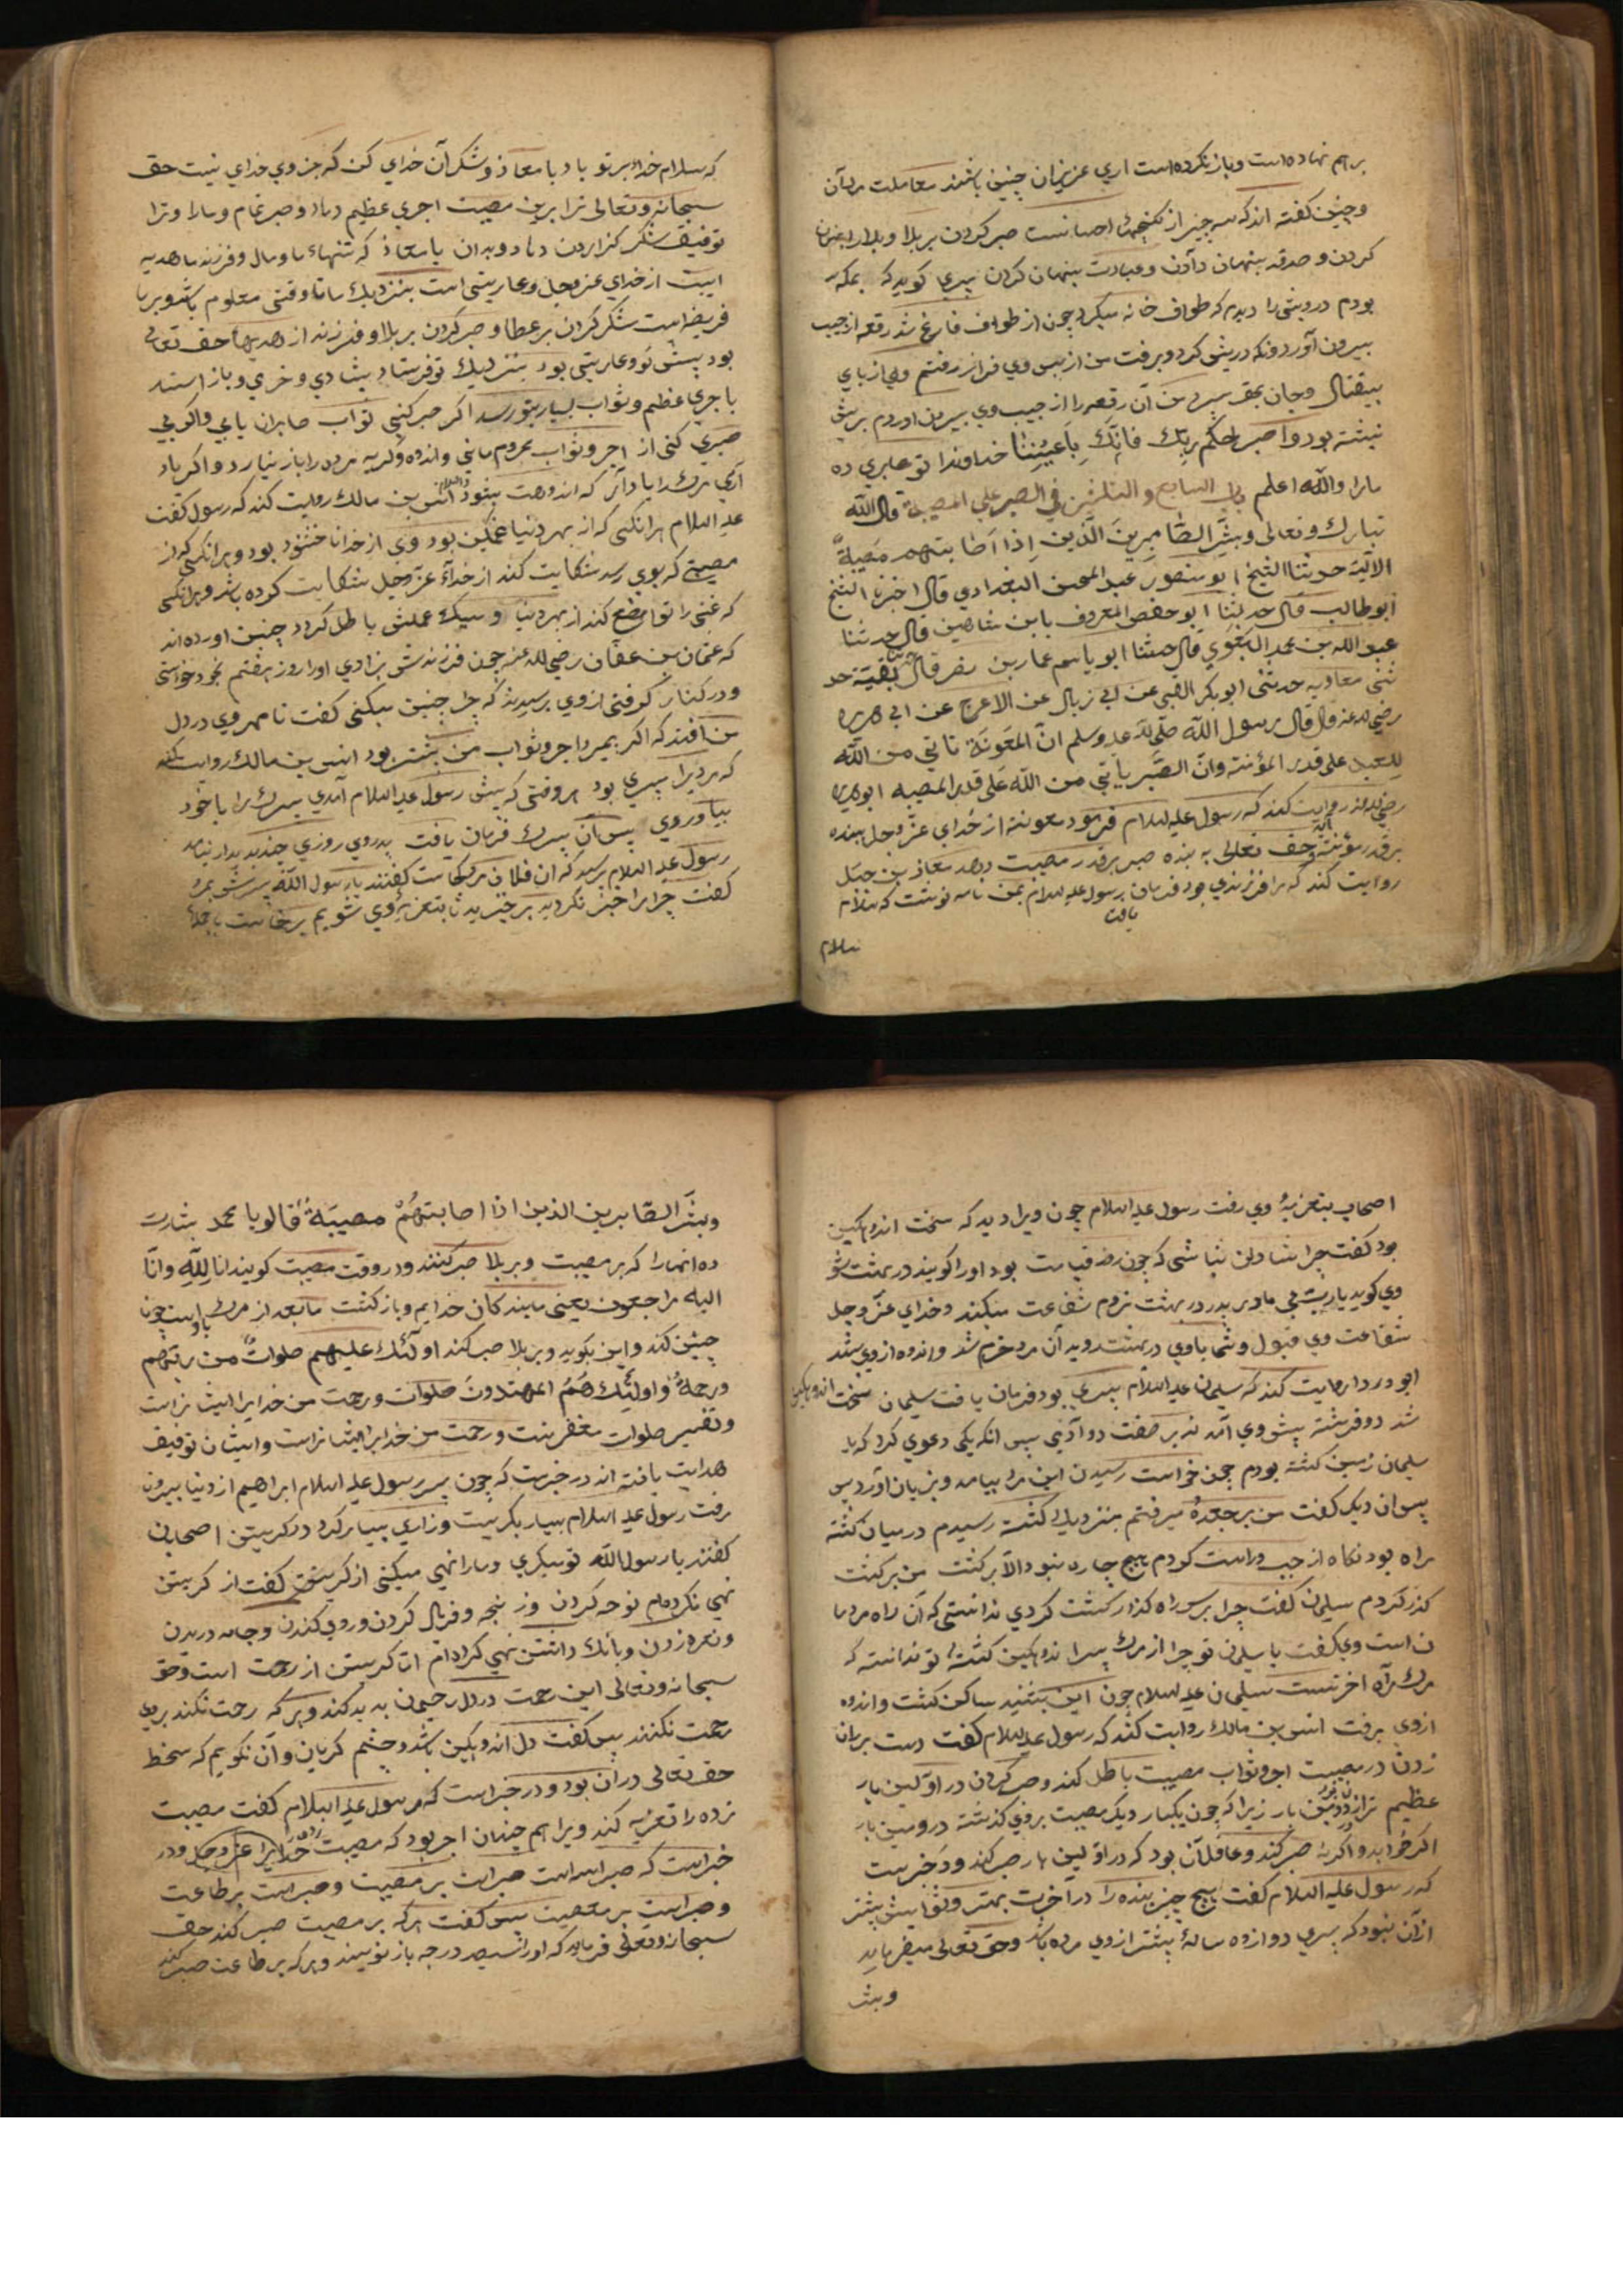 بر هم نهاده است و باز نکرده است اری عزیزان چنین باشند معاملت مردان
و چنین گفته اند که سه چیز از گنجهاء احسانست صبر کردن بر بلا و بلا را پنهان
کردن و صدقه پنهان دادن و عبادت پنهان کردن پیری کوید که بمکه
بودم درویشی را دیدم که طواف خانه میکرد چون از طواف فارغ شد رقعه از جیب
بیرون آورد ونکه دریشی کرد و برفت من از پس وی فراز رفتم وی از پای
بیفتاد و جان بحق سپرد من آن رقعه را از جیب وی بیرون اوردم بریش
نبشته بود واصبر لحکم ربک فانک باعیننا خداوندا تو صابری ده
مارا والله اعلم باب السابع والثلثین فی الصبر علی المصیبة قال الله
تبارک وتعالی وبشر الصابرین الذین اذا اصابتهم مصیبة
الآیة حدثنا الشیخ ابو منصور عبد المحسن البغدادی قال اخبرنا الشیخ
ابوطالب قال حدثنا ابو حفص المعروف بابن شاهین قال حدثنا
عبد الله بن محمد البغوی قال حدثنا ابو یاسر عمار بن نصر قال بقیة حد
ثنی معاویه حدثنی ابو بکر القتبی عن ابی زیال عن الاعرج عن ابی هریره
رضی الله عنه قال قال رسول الله صلی الله علیه وسلم ان المعونة تاتی من الله
للعبد علی قدر المؤنته وان الصبر یاتی من الله علی قدر المصیبه ابو هریره
رضی الله عنه روایت کند که رسول علیه السلام فرمود معونته از خدای عز وجل ببنده
بر قدر مؤنته وحق تعالی به بنده صبر بر قدر مصیبت دهد معاذ بن جبل
روایت کند که مرا فرزندی بود فرمان یافت رسول علیه السلام بمن نامه نوشت که سلام
سلام
که سلام خدا بر تو باد یا معاذ و شکر آن خدای کن که جز وی خدای نیست حق
سبحانه وتعالی ترا برین مصیبت اجری عظیم دهاد و صبر تمام و مارا و ترا
توفیق شکر گزاردن دهاد و بدان یا معاذ که تنهاء ما و مال و فرزند ما هدیه
ایست از خدای عز وجل وعاریتی است بنزدیک ما تا وقتی معلوم باشد و بر ما
فریضه است شکر کردن بر عطا و صبر کردن بر بلا و فرزند از هدیهاء حق تعالی
بود پیش تو و عاریتی بود بنزدیک تو فرستاد بشادی و خرمی و باز استد
باجری عظیم و ثواب بسیار بتو رسد اکر صبر کنی ثواب صابران یابی و اکر بی
صبری کنی از اجر و ثواب محروم مانی و اندوه و گریه مردن را باز نیارد و اکر یاد
آری مرک را یاد آر که اندوهت بشود والسلام انس بن مالک روایت کند که رسول گفت
علیه السلام هر انکس که از بهر دنیا غمگین بود وی از خدا ناخشنود بود و هر انکس که از
مصیبتی که بوی رسد شکایت کند از خدآء عز وجل شکایت کرده باشد و هر انکس
که غنی را تواضع کند از بهر دنیا و سیک عملش باطل کردد چنین اورده اند
که عثمان بن عفان رضی الله عنه چون فرزندش بزادی او را روز هفتم بخود خواستی
و در کنار گرفتی از وی پرسیدند که چرا چنین میکنی گفت تا مهر وی در دل
من افتد که اکر بمیرد اجر و ثواب من بیشتر بود انس بن مالک روایت کند
که مردیرا پسری بود هر وقتی که پیش رسول علیه السلام آمدی پسرک را با خود
بیاوردی پس آن پسرک فرمان یافت پدر وی روزی چند پدیدار نیامد
رسول علیه السلام پرسید که ان فلان مرد کجاست گفتند یا رسول الله پسرش بمرد
گفت چرا مرا خبر نکردید برخیزید تا بتعزیه وی شویم برخاست با جمله
اصحاب بتعزیهٔ وی رفت رسول علیه السلام چون ویرا دید که سخت اندوهکین
بود گفت چرا شادان نباشی که چون روز قیامت بود او را کویند در بهشت شو
وی کوید یا رب بی مادر پدر در بهشت نروم شفاعت میکند و خدای عز وجل
شفاعت وی قبول و شما با وی در بهشت روید آن مرد خرم شد و اندوه از وی بشد
ابو دردا روایت کند که سلیمان علیه السلام پسری بود فرمان یافت سلیمان سخت اندوهکین
شد دو فرشته پیش وی آمدند بر صفت دو آدمی پس انکه یکی دعوی کرد که یا
سلیمان زمین کشته بودم چون خواست رسیدن این مرد بیامد و بزیان آورد پس
پس ان دیکر گفت من بر جعده میرفتم بنزدیک کشته رسیدم در میان کشته
راه بود نکاه از چپ و راست کردم هیچ چاره نبود الا بر کشت من بر کشت
گذر کردم سلیمان گفت چرا بر سر راه گذار کشت کردی ندانستی که آن راه مردما
ن است وی گفت یا سلیمان تو چرا از مرک پسر اندوهکین کشتهٔ تو ندانسته که
مرک راه اخرتست سلیمان علیه السلام چون این بشنید ساکن کشت و اندوه
از وی برفت انس بن مالک روایت کند که رسول علیه السلام گفت دست بر ران
زدن در مصیبت اجر و ثواب مصیبت باطل کند و صبر کردن در اولین بار
عظیم تر از دومین بار زیرا که چون یکبار دیکر مصیبت بر وی گذشته دومین بار
اکر خواهد و اکر نه صبر کند و عاقل آن بود که در اولین بار صبر کند و در خبرست
که رسول علیه السلام گفت هیچ چیز بنده را در آخرت بهتر و ثوابش بیشتر
از آن نبود که پسری دوازده سالهٔ پیشتر از وی مرده باشد و حق تعالی میفرماید
وبشر
وبشر الصابرین الذین اذا اصابتهم مصیبة قالو یا محمد بشارت
ده انهارا که بر مصیبت و بر بلا صبر کنند و در وقت مصیبت کویند انا لله وانا
الیه راجعون یعنی ما بندکان خدایم و بازگشت ما بعد از مرک باوست چون
چنین کند و این بکوید و بر بلا صبر کند اولئک علیهم صلوات من ربهم
ورحمة واولئک هم المهتدون صلوات و رحمت من خدایرا ایشانراست
و تفسیر صلوات مغفرتست و رحمت من خدایرا ایشانراست و ایشان توفیق
هدایت یافته اند در خبرست که چون پسر رسول علیه السلام ابراهیم از دنیا بیرون
رفت رسول علیه السلام بسیار بکریست و زاری بسیار کرد در کریستن اصحابان
گفتند یا رسول الله تو میکری و ما را نهی میکنی از کریستن گفت از کریستن
نهی نکرده ام نوحه کردن و زنجه و فریاد کردن و روی کندن و جامه دریدن
و نعره زدن و بانک داشتن نهی کرده ام اما کریستن از رحمت است و حق
سبحانه وتعالی این رحمت در دل رحیمان پدید کند و هر که رحمت نکند بر وی
رحمت نکنند پس گفت دل اندوهکین باشد و چشم کریان و آن نکویم که سخط
حق تعالی در آن بود و در خبر است که رسول علیه السلام گفت مصیبت
زده را تعزیه کنید ویرا هم چندان اجر بود که مصیبت زده خدایرا عز وجل و در
خبر است که صبر سه است صبر است بر مصیبت و صبر است بر طاعت
و صبر است بر معصیت پس گفت هر که بر مصیبت صبر کند حق
سبحانه وتعالی فرماید که او را سیصد درجه باز نویسند و هر که بر طاعت صبر کند